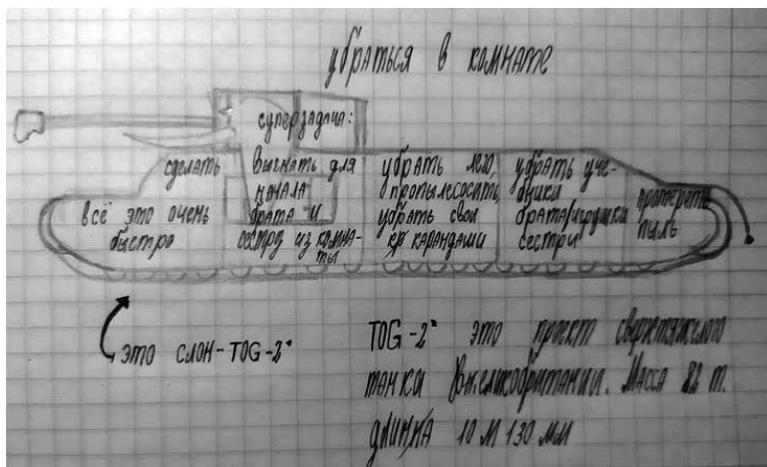 убраться в комнате
суперзадача:
сделать
всё это очень
быстро
выгнать для
начала
брата и
сестру из комна-
ты
убрать лего,
пропылесосить,
убрать свои
кр карандаши
убрать уче-
бники
брата/игрушки
сестры
протереть
пыль
это слон-TOG-2*
TOG-2* это проект сверхтяжелого
танка Великобритании. Масса 82 т.
длинна 10 м 130 мм